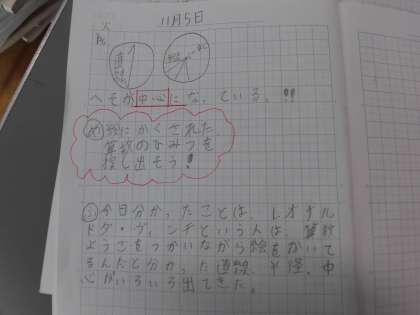 11月5日
火
へそが中心になっている。!!
め 絵にかくされた
算数のひみつを
探し出そう!
ふ 今日分かったことは、レオナル
ドダ・ヴィンチという人は、算数
ようごをつかいながら絵をかいて
るんだと分かった直線、半径、中
心がいろいろ出てきた。